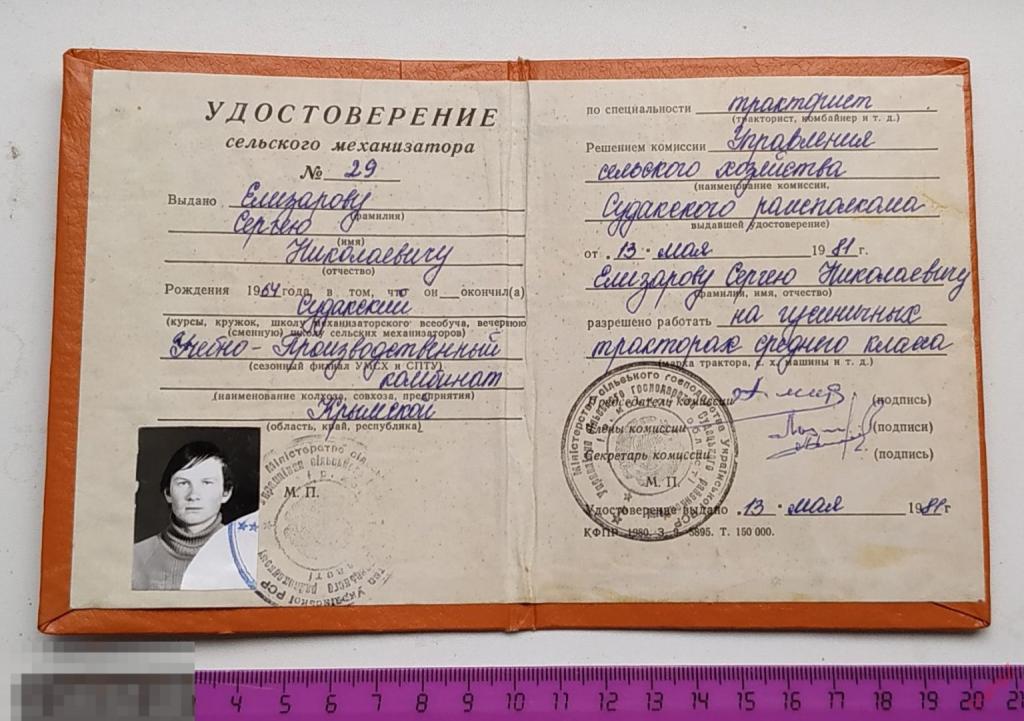 УДОСТОВЕРЕНИЕ
сельского механизатора
№ 29
Выдано Елизарову
(фамилия)
Сергею
(имя)
Николаевичу
(отчество)
Рождения 1964 года, в том, что он окончил(а)
Судакский
(курсы, кружок, школу механизаторского всеобуча, вечернюю
(сменную) школу сельских механизаторов)
Учебно-Производственный
(сезонный филиал УМСХ и СПТУ)
комбинат
(наименование колхоза, совхоза, предприятия)
Крымской
(область, край, республика)
М. П.
по специальности тракторист
(тракторист, комбайнер и т. д.)
Решением комиссии Управления
сельского хозяйства
(наименование комиссии,
Судакского райисполкома
выдавшей удостоверение)
от 13 мая 1981 г.
Елизарову Сергею Николаевичу
(фамилия, имя, отчество)
разрешено работать на гусеничных
тракторах среднего класса
(марка трактора, с. х. машины и т. д.)
Председатель комиссии (подпись)
Члены комиссии (подписи)
Секретарь комиссии (подпись)
М. П.
Удостоверение выдано 13 мая 1981 г
КФПР 1980. З. 5895. Т. 150 000.
Міністерство сільського господарства Української РСР
4 5 6 7 8 9 10 11 12 13 14 15 16 17 18 19 20 21